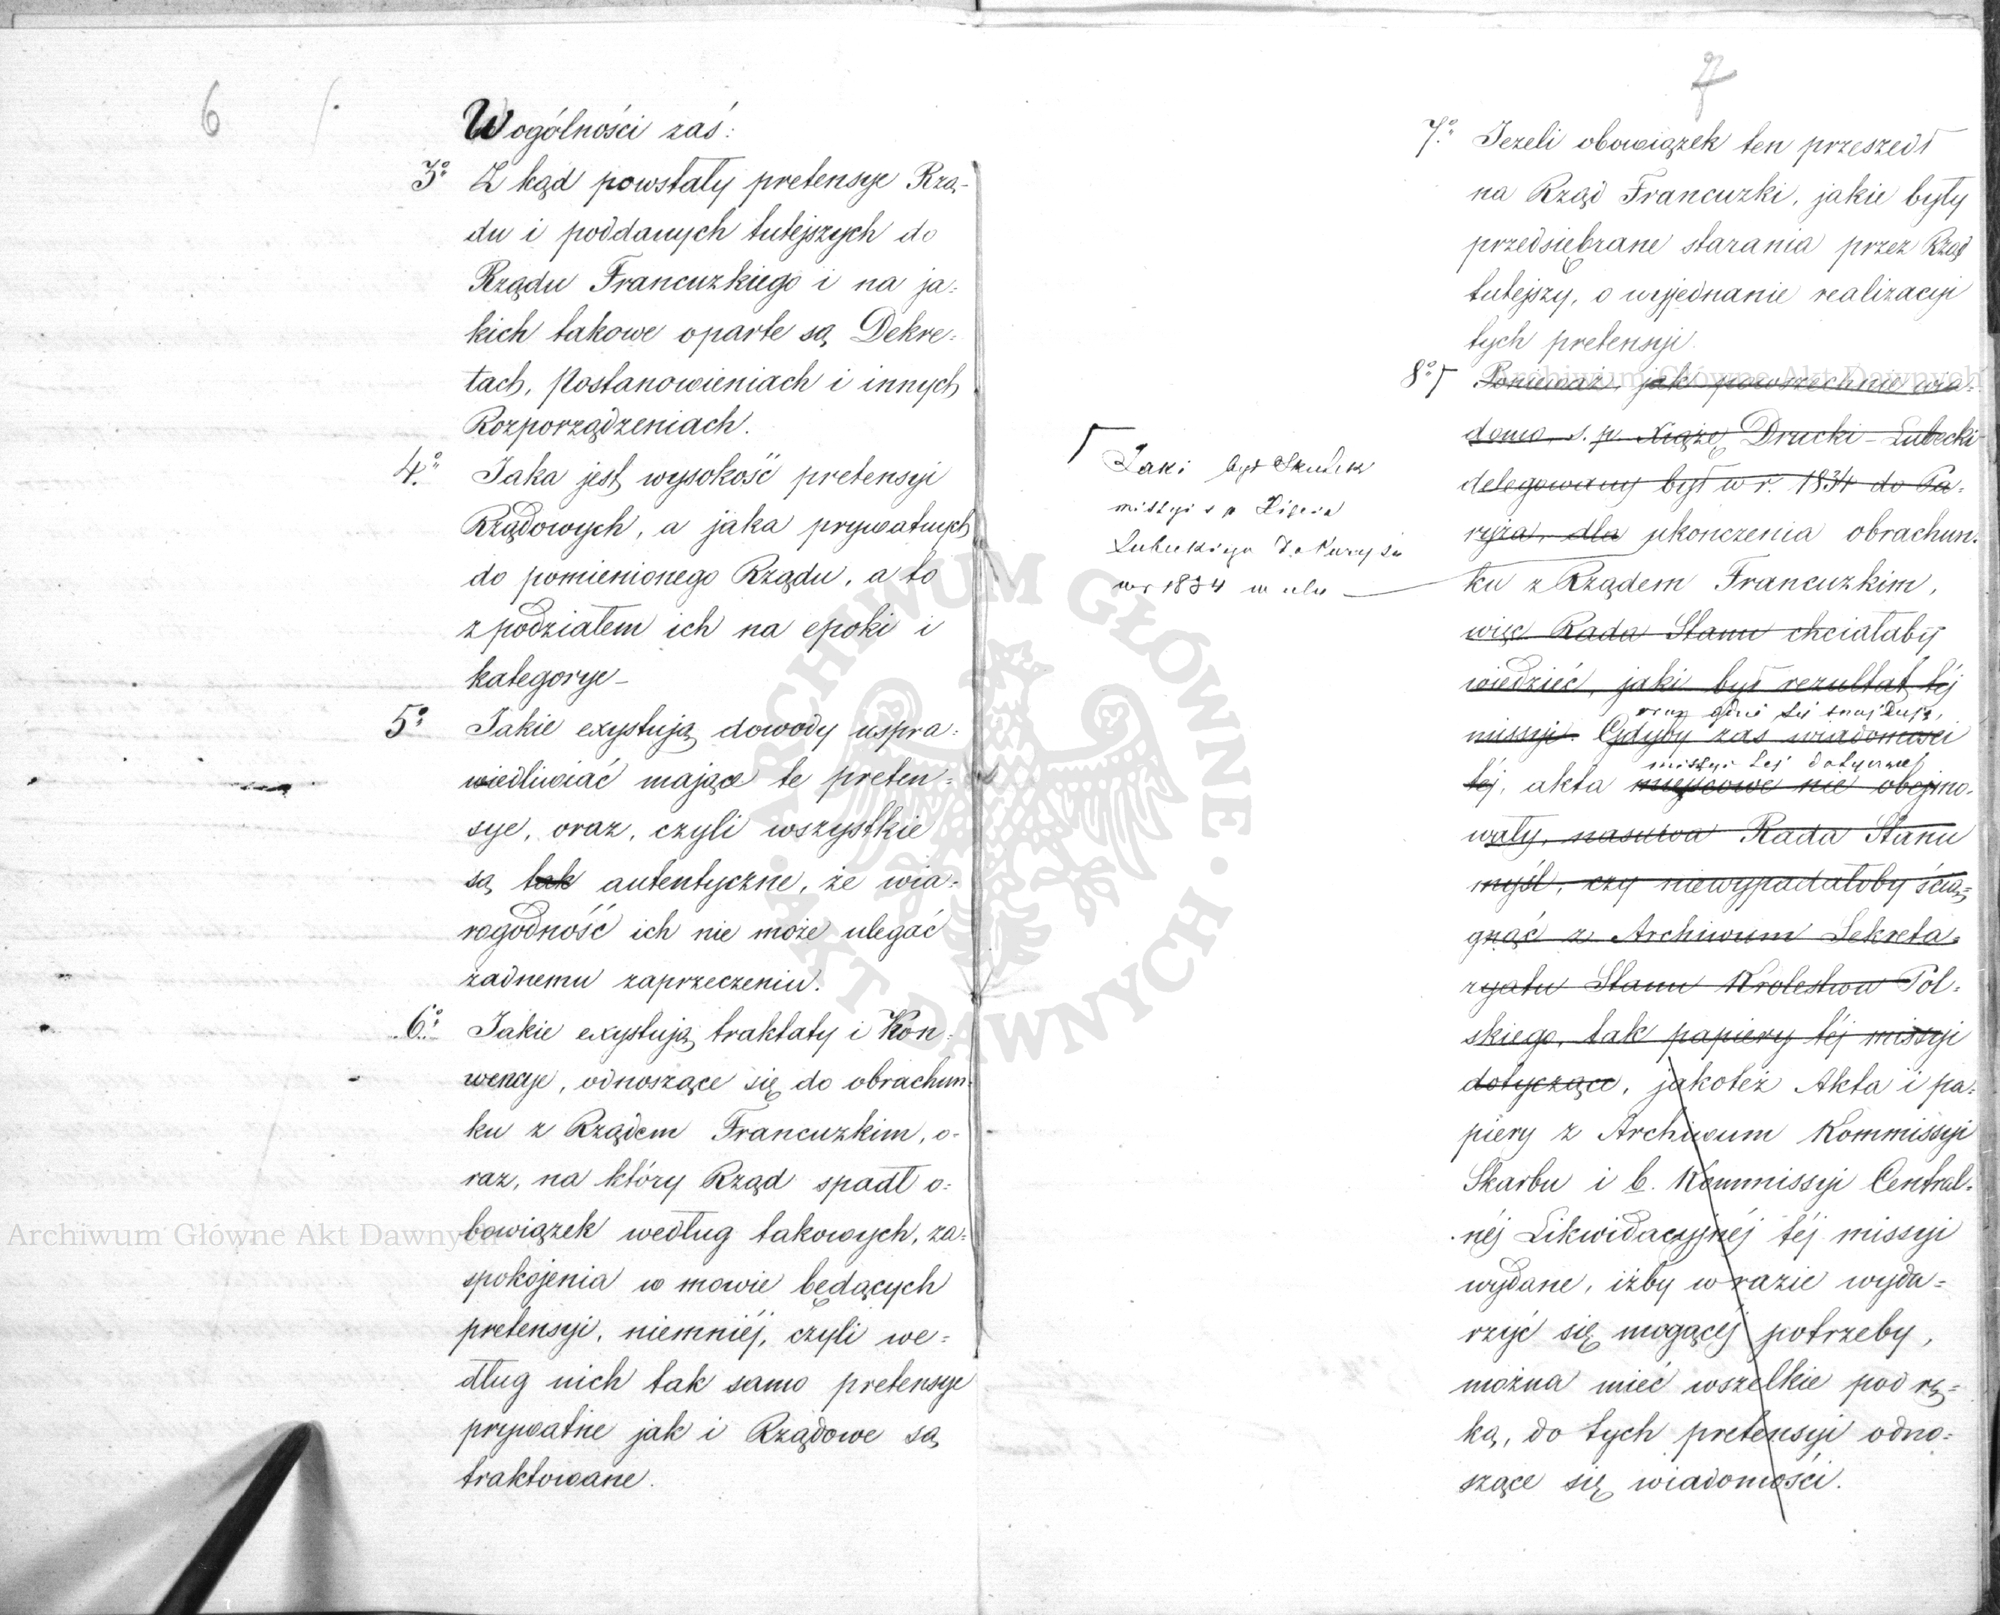 6
Wogólności zaś:
3º Z kąd powstały pretensye Rzą-
du i poddanych tutejszych do
Rządu Francuzkiego i na ja=
kich takowe oparte są Dekre=
tach, Postanowieniach i innych
Rozporządzeniach.
4º Jaka jest wysokość pretensyi
Rządowych, a jaka prywatnych
do pomienionego Rządu, a to
z podziałem ich na epoki i
kategorye-
5º Jakie exystują dowody uspra=
wiedliwiać mające te preten=
sye, oraz, czyli wszystkie
są tak autentyczne, że wia=
rogodność ich nie może ulegać
żadnemu zaprzeczeniu.
6º Jakie exystują traktaty i Kon=
wencye, odnoszące się do obrachun=
ku z Rządem Francuzkim, o-
raz, na który Rząd spadł o=
bowiązek według takowych, za=
spokojenia w mowie będących
pretensyi, niemniéj, czyli we=
dług nich tak samo pretensye
prywatne jak i Rządowe są
traktowane.
7
7º Jeżeli obowiązek ten przeszedł
na Rząd Francuzki, jakie były
przedsiębrane starania przez Rząd
tutejszy, o wyjednanie realizacyi
tych pretensyi.
8º Ponieważ, jak powszechnie wia=
domo, ś. p. Xiążę Drucki-Lubecki
delegowany był w r. 1834 do Pa=
ryża, dla ukończenia obrachun=
ku z Rządem Francuzkim,
więc Rada Stanu chciałaby
wiedzieć, jaki był rezultat téj
oraz gdzie się znajdują,
missyi. Gdyby zaś wiadomości
missyi tej dotyczące
téj, akta miejscowe nie obejmo=
wały, nasuwa Rada Stanu
myśl, czy niewypadałoby ścią=
gnąć z Archiwum Sekreta=
ryatu Stanu Królestwa Pol=
skiego, tak papiery téj missyi
dotyczące, jakoteż Akta i pa=
piery z Archiwum Kommissyi
Skarbu i b. Kommissyi Central=
néj Likwidacyjnéj téj missyi
wydane, iżby w razie wyda=
rzyć się mogącéj potrzeby,
można mieć wszelkie pod rę=
ką, do tych pretensyi odno=
szące się wiadomości.
Jaki był skutek
missyi ś p Xięcia
Lubeckiego do Paryża
w r 1834 w celu
Archiwum Główne Akt Dawnych
Archiwum Główne Akt Dawnych
ARCHIWUM GŁÓWNE
· AKT DAWNYCH ·